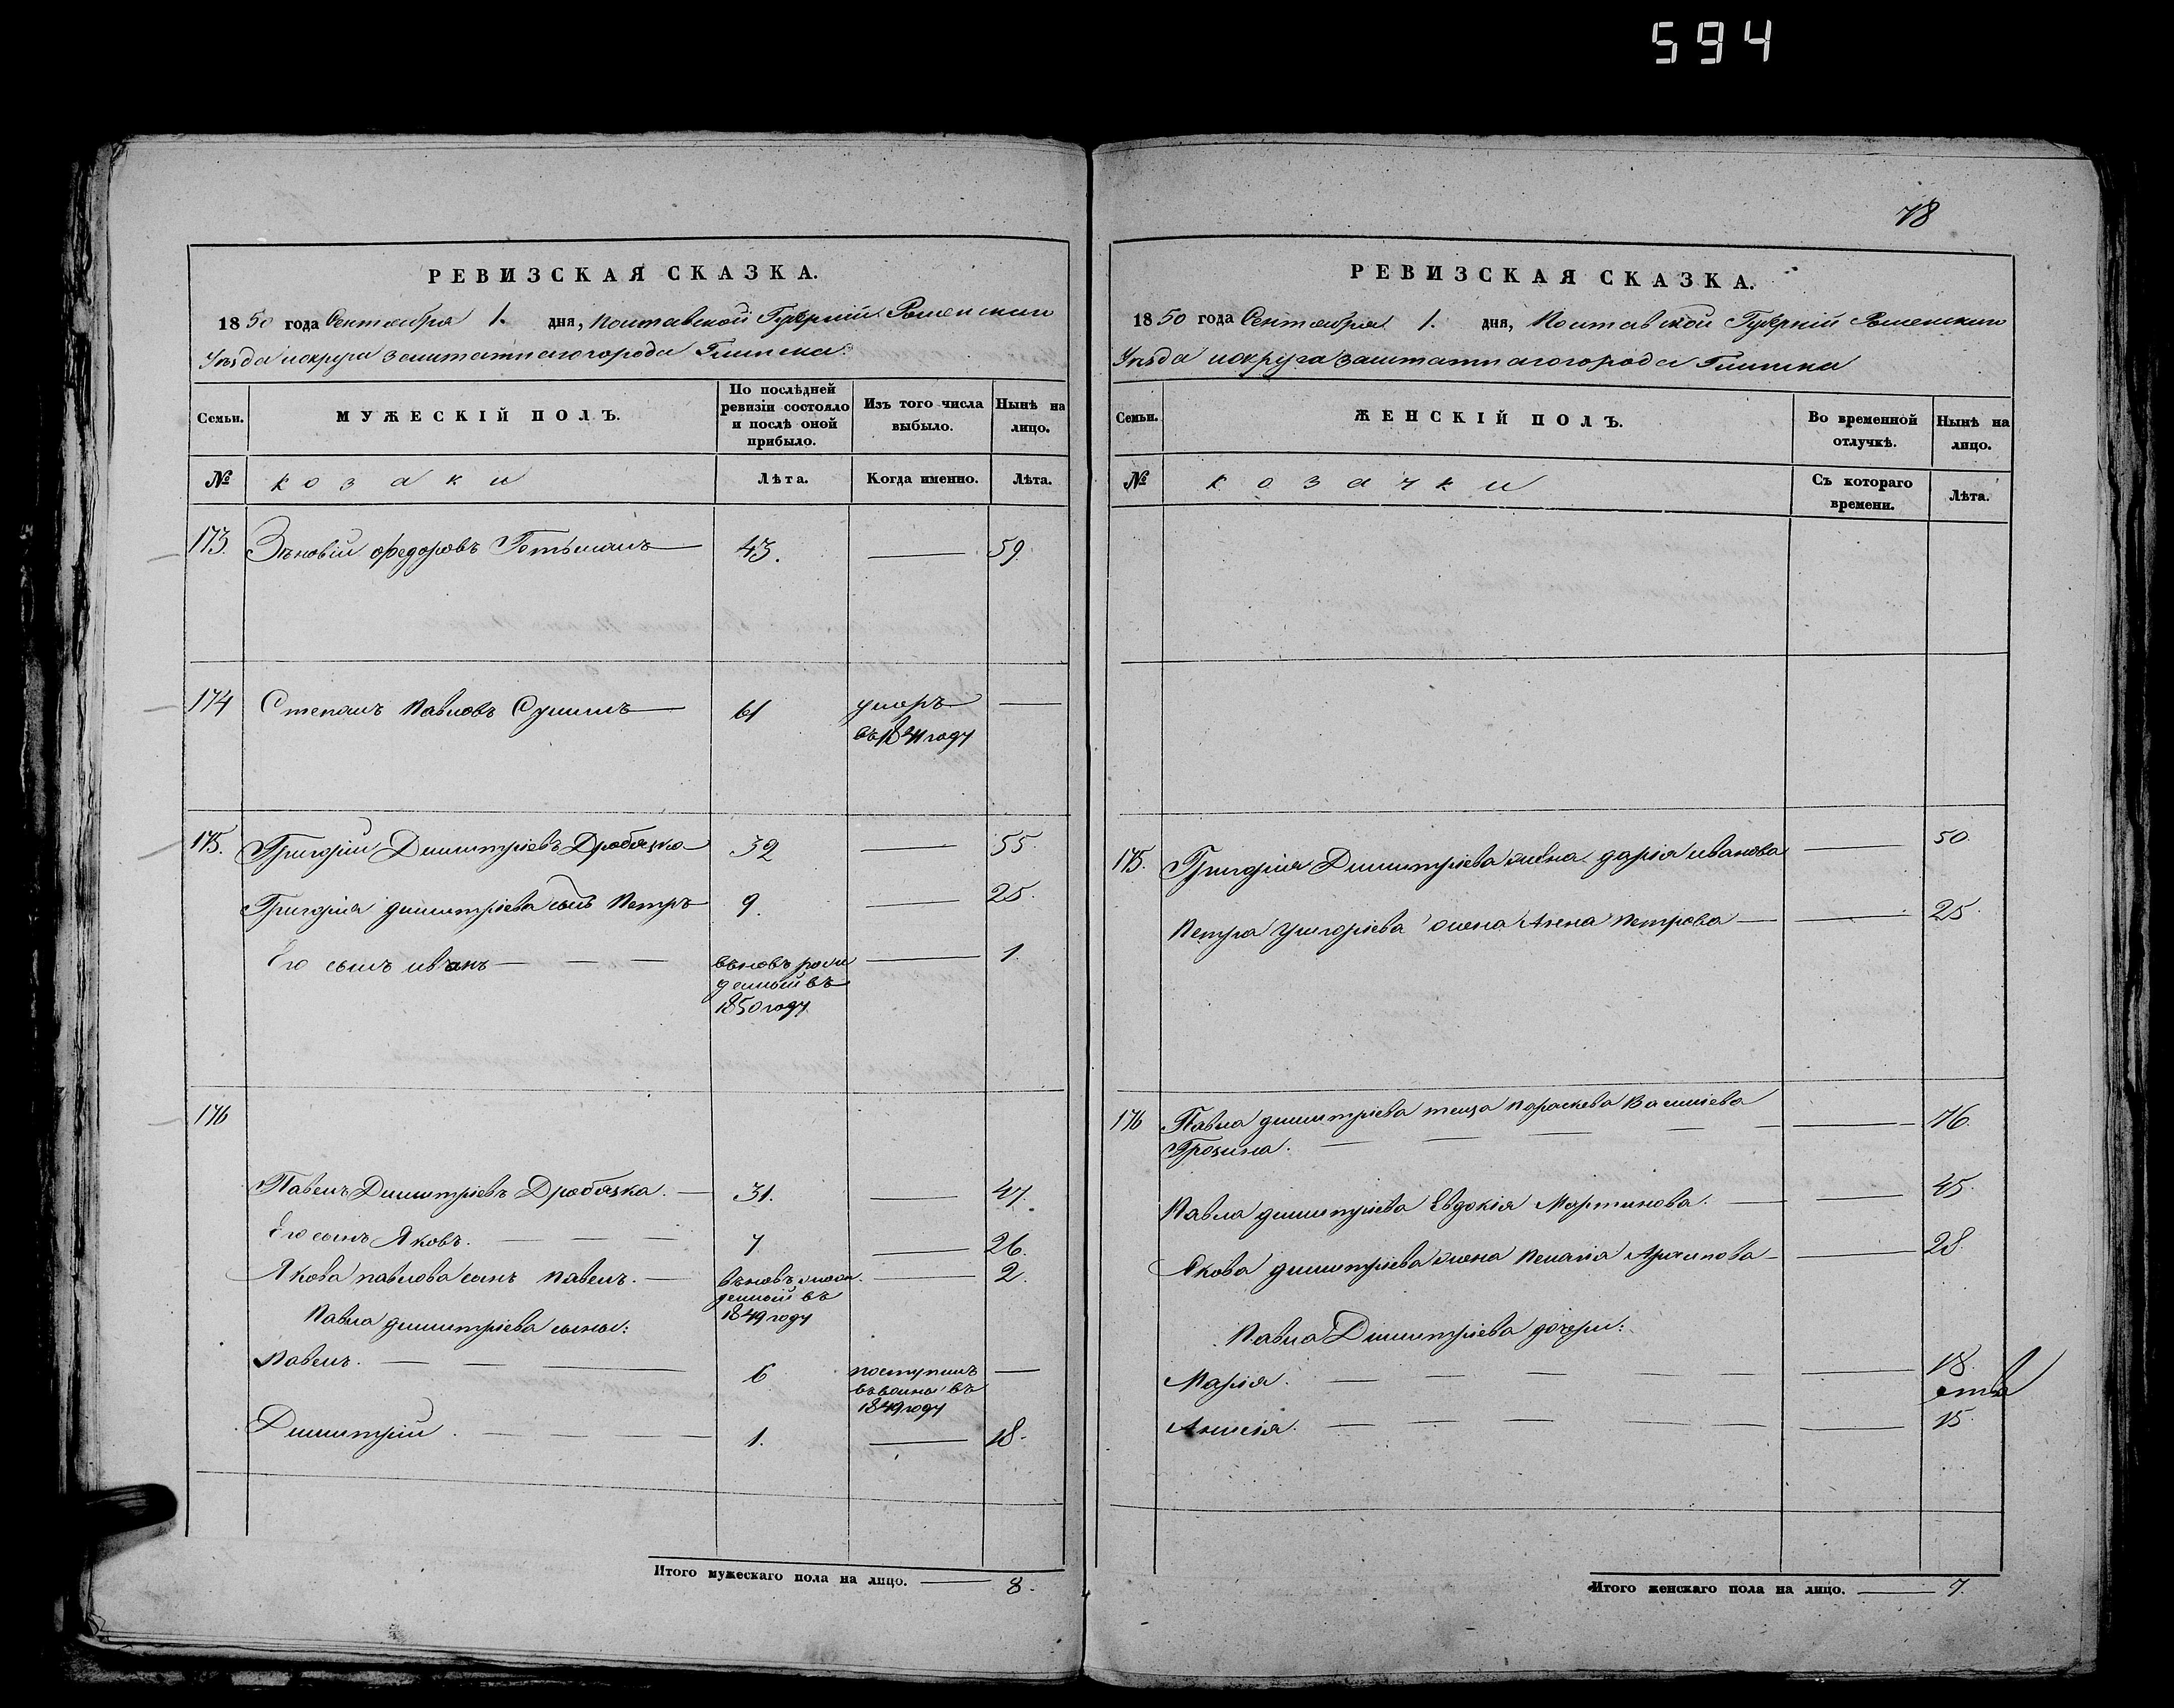 594
78
РЕВИЗСКАЯ СКАЗКА.
1850 года Сентября 1. дня, Полтавской Губерніи Роменскаго
Уѣзда и округа заштатнаго города Глинска.
Семьи.
МУЖЕСКІЙ ПОЛЪ.
По послѣдней ревизіи состояло и послѣ оной прибыло.
Изъ того числа выбыло.
Нынѣ на лицо.
№
козаки
Лѣта.
Когда именно.
Лѣта.
173. Зѣновій Федоровъ Гетьманъ 43. — 59
174 Степанъ Павловъ 61 умеръ —
въ 1841 году
175. Григорій Димитріевъ Дробязко 39 — 55.
Григорія Димитріева сынъ Петръ 9. — 25.
Его сынъ иванъ — — — вновь рож — 1
денный въ
1850 году
176
Павелъ Димитріевъ Дробязка. — 31. — 47.
Его сынъ Яковъ. — — — 7 — 26.
Якова павлова сынъ павелъ. — вновь рож — 2.
денный въ
1849 году
Павла димитріева сыны:
Павелъ. — — — 6 поступилъ —
въ воины въ
1849 году
Димитрій. — — — 1. — 18.
Итого мужескаго пола на лицо. — 8.
РЕВИЗСКАЯ СКАЗКА.
1850 года Сентября 1. дня, Полтавской Губерніи Роменскаго
Уѣзда и округа заштатнаго города Глинска
Семьи.
ЖЕНСКІЙ ПОЛЪ.
Во временной отлучкѣ.
Нынѣ на лицо.
№
козачки
Съ котораго времени.
Лѣта.
175. Григорія Димитріева жена дарія иванова — 50.
Петра григоріева жена Анна петрова — — 25.
176 Павла димитріева теща параскева Василіева
— 76.
Павла димитріева Евдокія Мартинова. — — 45.
Якова димитріева жена пелагія Архипова — — 28.
Павла Димитріева дочери:
Марія. — — — — — 18.
Анисія. — — — — — 15.
Итого женскаго пола на лицо. — 7.